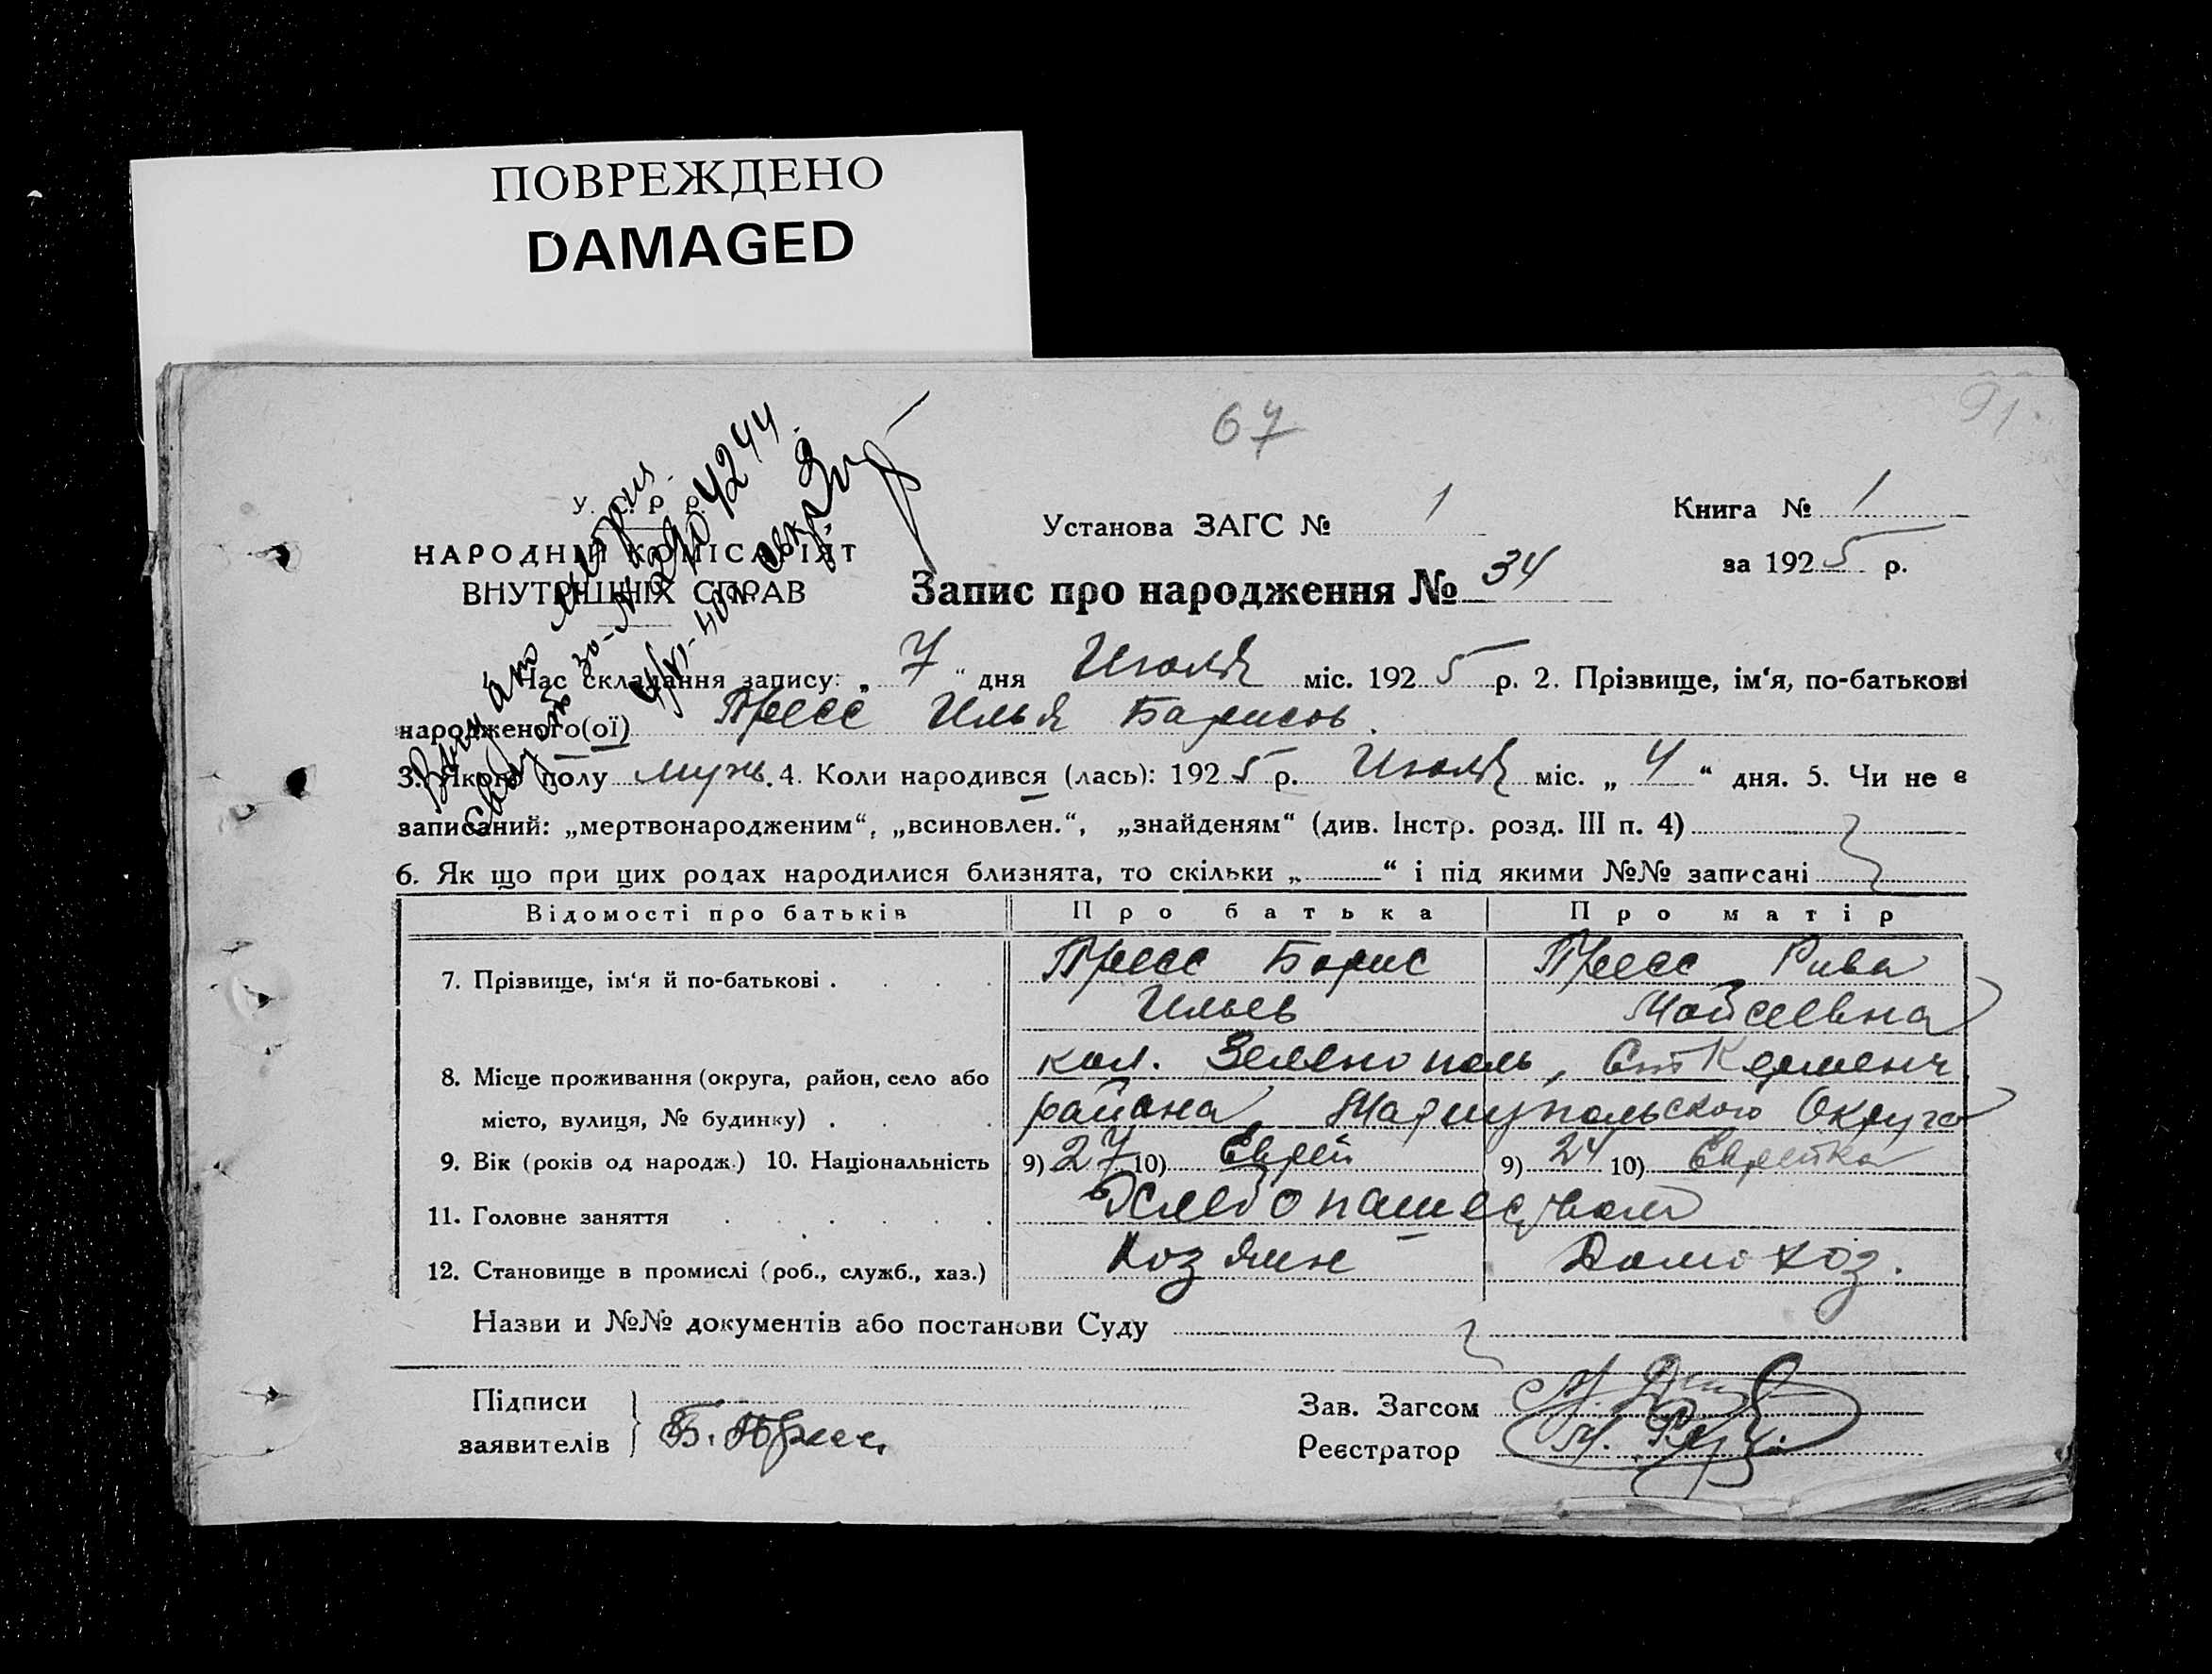 ПОВРЕЖДЕНО
DAMAGED
67
91
У. С. Р. Р.
НАРОДНІЙ КОМІСАРІЯТ
ВНУТРІШНІХ СПРАВ
Установа ЗАГС № 1
Книга № 1
за 1925 р.
Запис про народження № 34
Час складання запису: „ 7 “ дня Июля міс. 1925 р. 2. Прізвище, ім‘я, по-батькові
народженого(ої) Пресс Илья Борисов
3. Якого полу муж. 4. Коли народився (лась): 1925 р. Июля міс. „ 4 “ дня. 5. Чи не є
записаний: „мертвонародженим“, „всиновлен.“, „знайденям“ (див. Інстр. розд. III п. 4)
6. Як що при цих родах народилися близнята, то скільки „ “ і під якими №№ записані
Відомості про батьків Про батька Про матір
7. Прізвище, ім‘я й по-батькові . Пресс Борис Пресс Рива
Ильев Мойсеевна
8. Місце проживання (округа, район, село або кол. Зеленополь, Ст Керменч
місто, вулиця, № будинку) . района, Мариупольского Округа
9. Вік (років од народж.) 10. Національність 9) 27 10) Еврей 9) 24 10) Еврейка
11. Головне заняття Хлебопашеством
12. Становище в промислі (роб., служб., хаз.) Хозяин Домохоз.
Назви и №№ документів або постанови Суду
Підписи
заявителів Б. Пресс
Зав. Загсом
Реєстратор